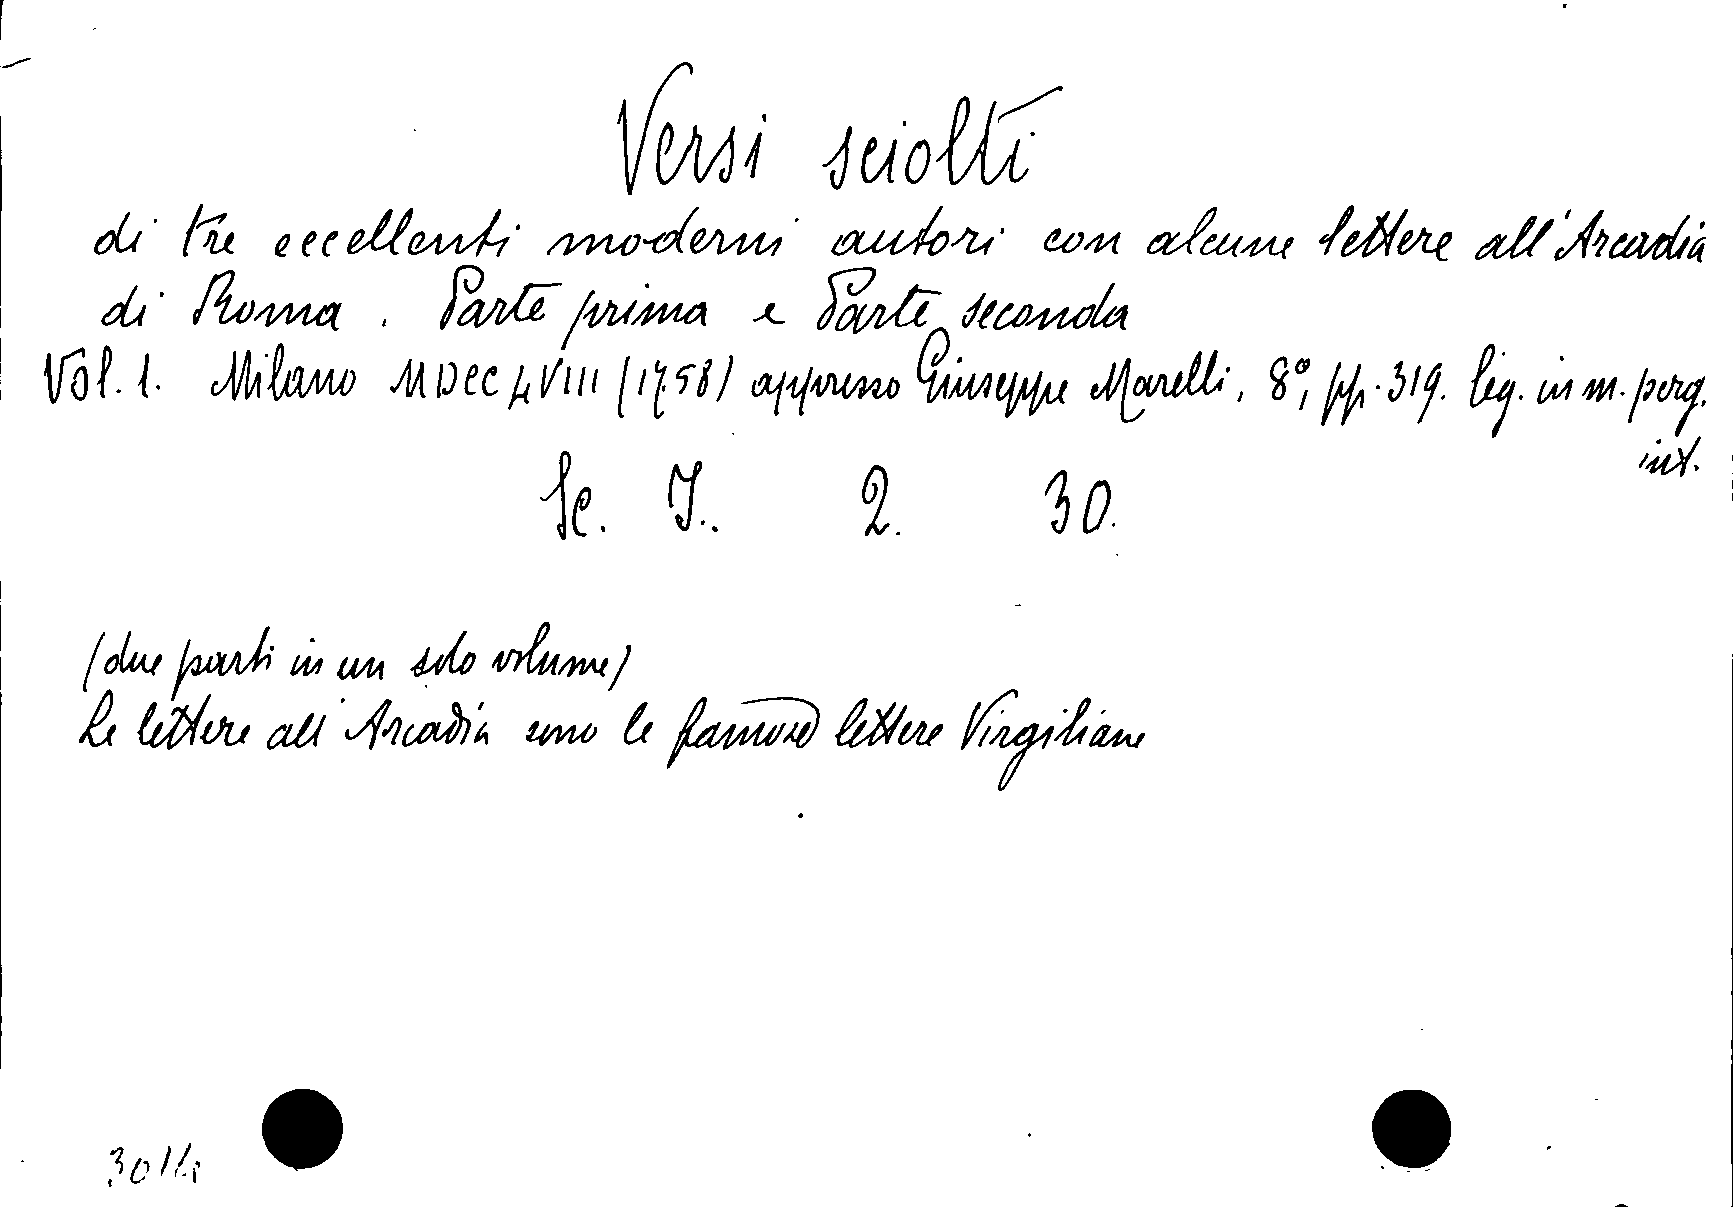 Versi sciolti
di tre eccellenti moderni autori con alcune lettere all'Arcadia
di Roma. Parte prima e Parte seconda
Vol. 1. Milano MDCCLVIII (1758) appresso Giuseppe Marelli, 8°, pp. 319. leg. in m. perg.
int.
Sc. I. 2. 30.
(due parti in un solo volume)
Le lettere all'Arcadia sono le famose lettere Virgiliane
3014